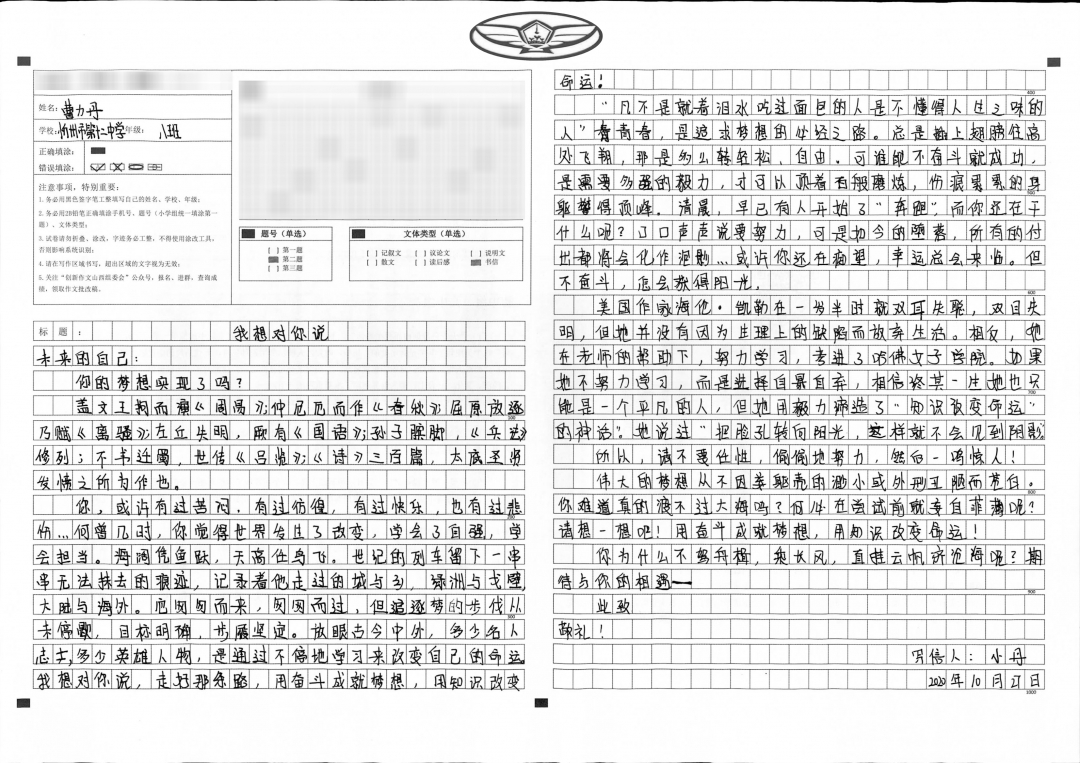 姓名：曹力丹
学校：忻州市第十二中学 年级：八班
正确填涂：
错误填涂：
注意事项，特别重要：
1.务必用黑色签字笔工整填写自己的姓名、学校、年级；
2.务必用2B铅笔正确填涂手机号、题号（小学组统一填涂第一
题）、文体类型；
3.试卷请勿折叠、涂改，字迹务必工整，不得使用涂改工具，
否则影响系统识别；
4.请在写作区域书写，超出区域的文字视为无效；
5.关注“创新作文山西组委会”公众号，报名、进群，查询成
绩，领取作文批改稿。
题号（单选）
[ ] 第一题
第二题
[ ] 第三题
文体类型（单选）
[ ] 记叙文 [ ] 议论文 [ ] 说明文
[ ] 散文 [ ] 读后感 书信
标 题 ： 我想对你说
未来的自己：
你的梦想实现了吗？
盖文王拘而演《周易》；仲尼厄而作《春秋》；屈原放逐
100
乃赋《离骚》；左丘失明，厥有《国语》；孙子膑脚，《兵法》
修列；不韦迁蜀，世传《吕览》；《诗》三百篇，大底圣贤
发愤之所为作也。
你，或许有过苦闷，有过彷徨，有过快乐，也有过悲
200
伤…何曾几时，你觉得世界发生了改变，学会了自强，学
会担当。海阔凭鱼跃，天高任鸟飞。世纪的列车留下一串
串无法抹去的痕迹，记录着他走过的城与乡，绿洲与戈壁，
大陆与海外。尽匆匆而来，匆匆而过，但追逐梦的步伐从
300
未停歇，目标明确，步履坚定。放眼古今中外，多少名人
志士，多少英雄人物，是通过不停地学习来改变自己的命运。
我想对你说，走好那条路，用奋斗成就梦想，用知识改变
命运！
400
“凡不是就着泪水吃过面包的人是不懂得人生之味的
人”青青春，是追求梦想的必经之路。总是插上翅膀往高
处飞翔，那是多么轻松、自由。可谁能不奋斗就成功，
是需要多强的毅力，才可以顶着百般磨炼，伤痕累累的身
500
躯攀得顶峰。清晨，早已有人开始了“奔跑”，而你还在干
什么呢？口口声声说要努力，可是如今的堕落，所有的付
出都将会化作泡影…或许你还在幽望，幸运总会来临。但
不奋斗，怎会获得阳光。
600
美国作家海伦·凯勒在一岁半时就双耳失聪，双目失
明，但她并没有因为生理上的缺陷而放弃生活。相反，她
在老师的帮助下，努力学习，考进了哈佛女子学院。如果
她不努力学习，而是选择自暴自弃，相信终其一生她也只
700
能是一个平凡的人，但她用毅力缔造了“知识改变命运”
的神话”。她说过“把脸孔转向阳光，这样就不会见到阴影
所以，请不要任性，偶偶地努力，然后一鸣惊人！
伟大的梦想从不因辈躯壳的渺小或外形丑陋而苍白。
800
你难道真的渡不过大海吗？何必在尝试前就妄自菲薄呢？
请想一想吧！用奋斗成就梦想，用知识改变命运！
你为什么不驾舟楫，乘长风，直挂云帆济沧海呢？期
待与你的相遇——
900
此致
敬礼！
写信人：小丹
2020年10月27日
1000